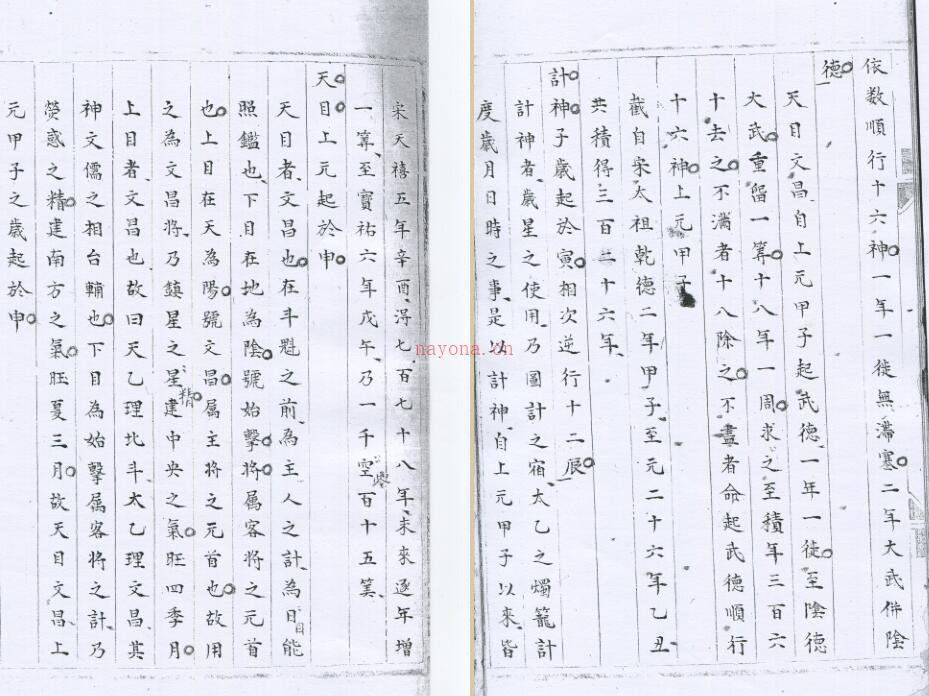 依数順行十六神一年一徙無滯塞二年大武佛陰
德
天目文昌自上元甲子起武德一年一徙至陰德
大武重留一筭十八年一周求之至積年三百六
十去之不滿者十八除之不盡者命起武德順行
十六神上元甲子
截自宋太祖乾德二年甲子至元二十六年乙丑
共積得三百二十六年
計神子歲起於寅相次逆行十二辰
計神者歲星之使用乃圖計之宿太乙之燭籠計
度歲月日時之事是以計神自上元甲子以來皆
宋天禧五年辛酉淂七百七十八年末來逐年增
一筭至寳祐六年戊午乃一千空百十五筭
天目上元起於申
天目者文昌也在斗魁之前為主人之計為日目能
照鑑也下目在地為陰號始擊將属客將之元首
也上目在天為陽號文昌属主將之元首也故用
之為文昌將乃鎮星之星精建中央之氣旺四季月
上目者文昌也故曰天乙理北斗太乙理文昌其
神文儒之相台輔也下目為始擊属客將之計乃
熒惑之精建南方之氣旺夏三月故天目文昌上
元甲子之歲起於申
nayona.cn